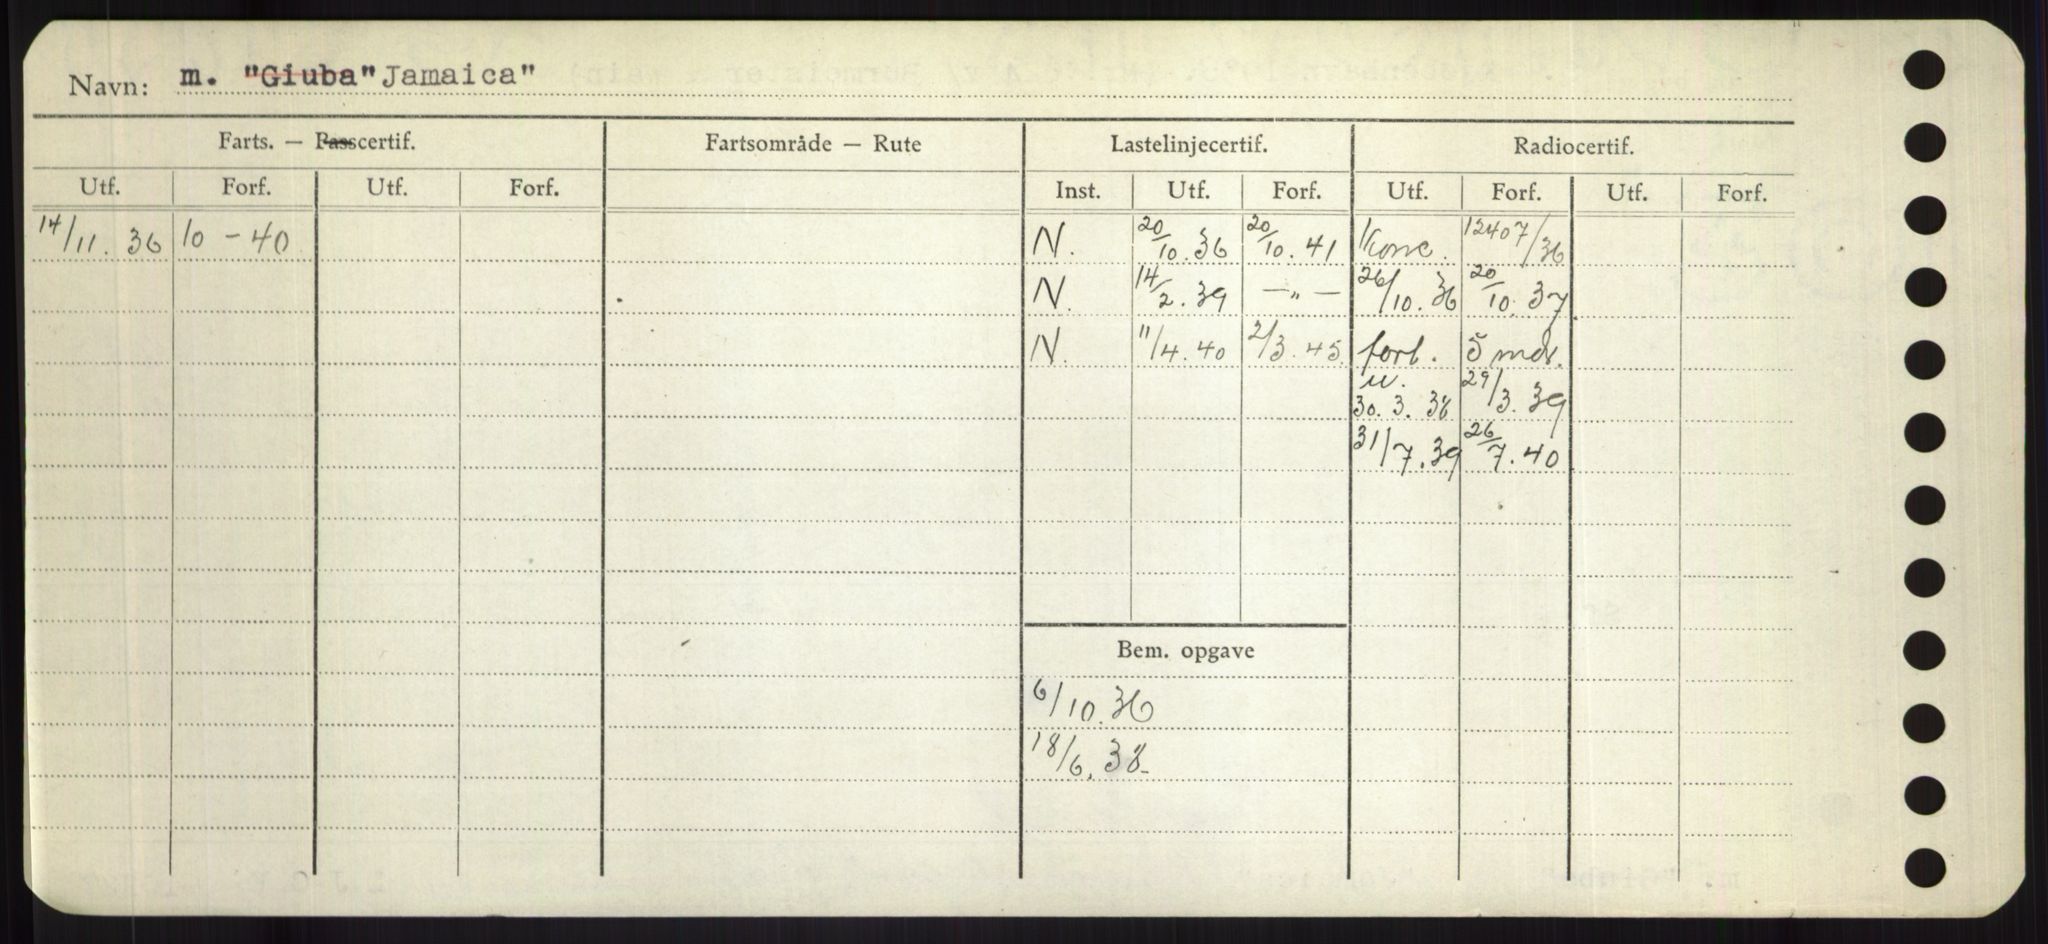 Navn: m. "Giuba" Jamaica"
Farts. — Passcertif. Fartsområde — Rute Lastelinjecertif. Radiocertif.
Utf. Forf. Utf. Forf. Inst. Utf. Forf. Utf. Forf. Utf. Forf.
14/11.36 10-40 N. 20/10.36 20/10.41 Konc. 12407/36
N. 14/2.39 —„— 26/10.36 20/10.37
N. 11/4.40 2/3.45. forl. 5 mdr.
u. 30.3.38 29/3.39
31/7.39 26/7.40
Bem. opgave
6/10.36
18/6.38